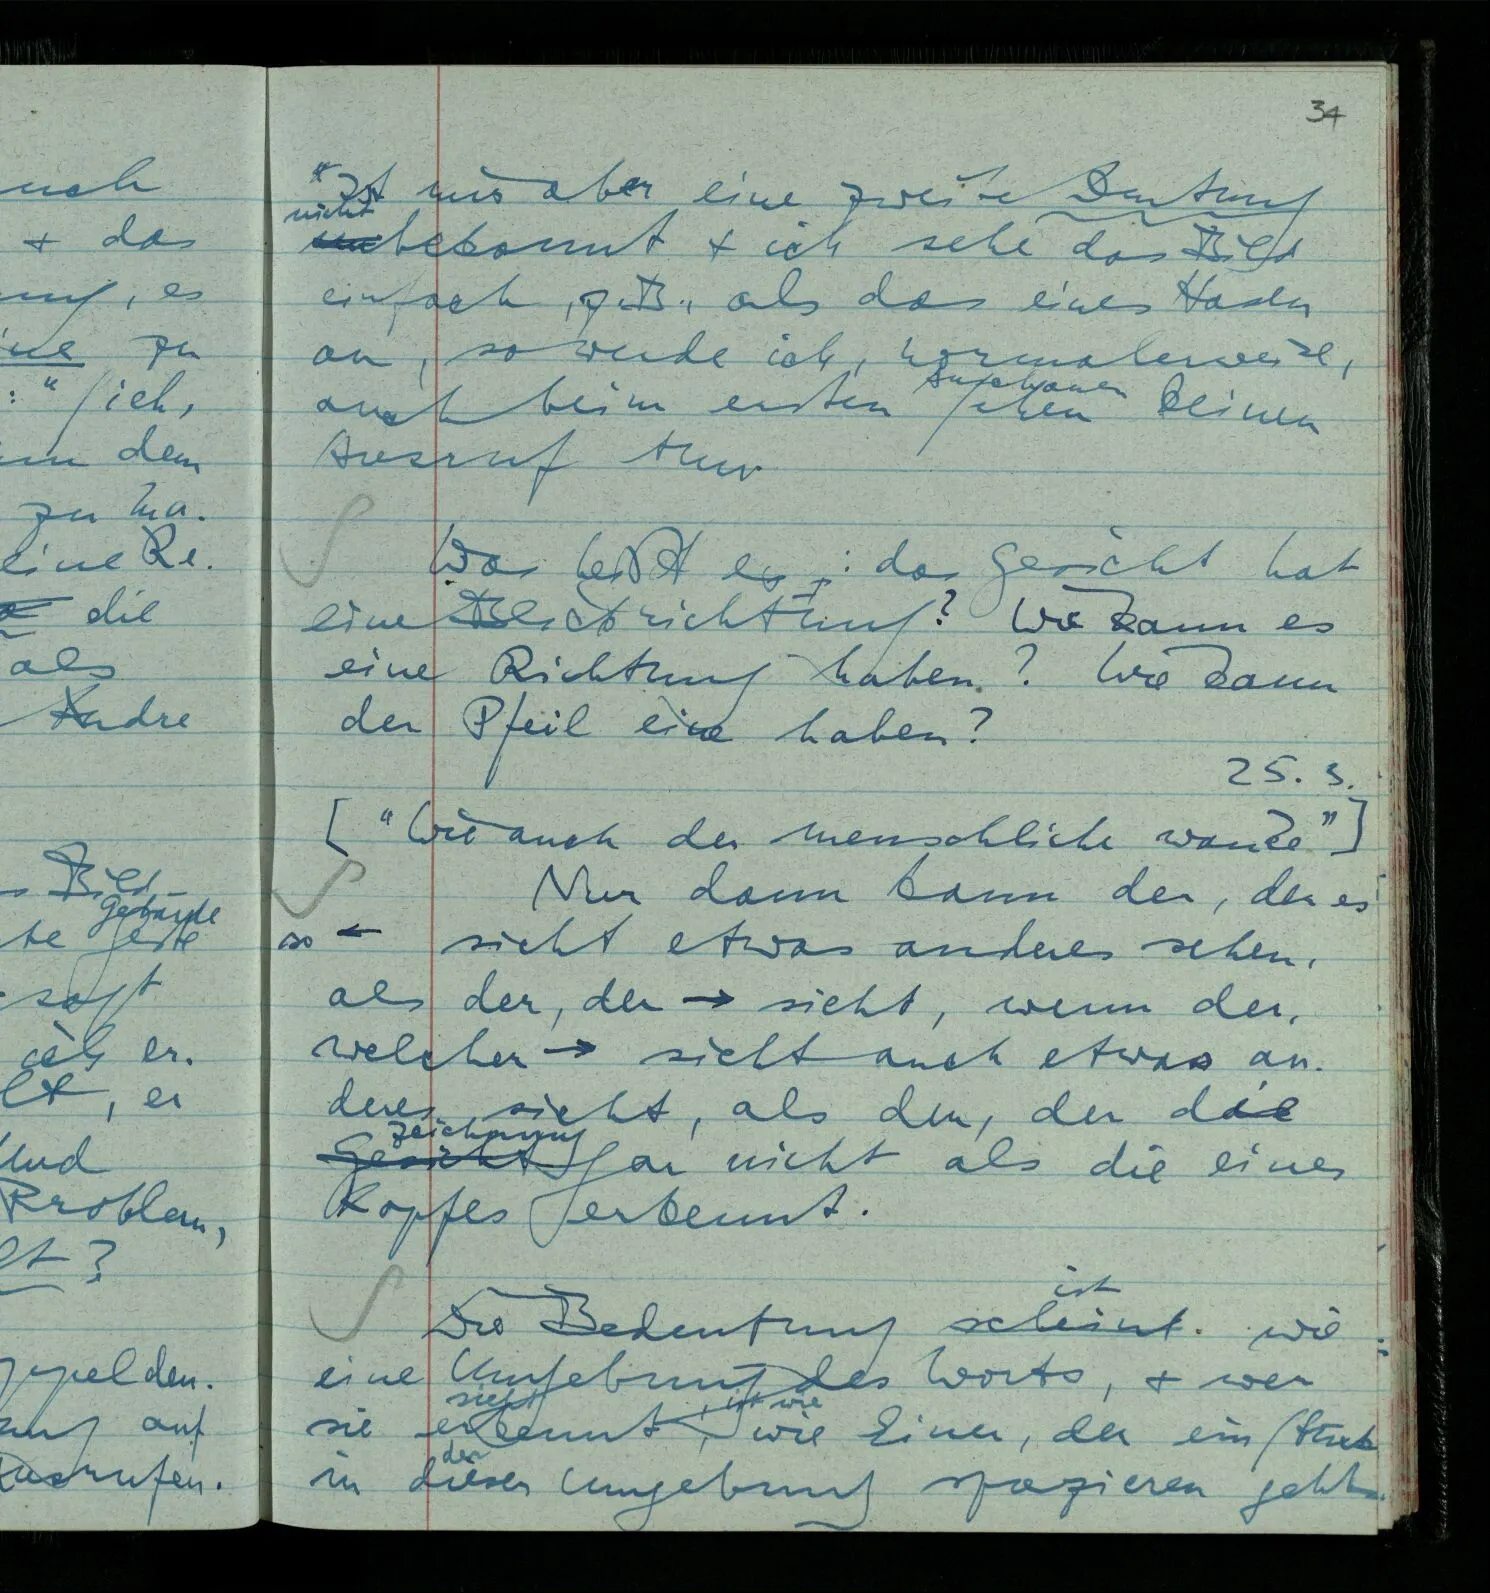 uch
+ das
ung, es
ine zu
:" sich,
um dem
zu ma-
eine Re-
die
als
Andre
s Bild
Gebärde
te Geste
sagt
ich er-
lt, er
Und
Problem,
lt?
ppelden-
ung auf
Ausrufen.
34
"Ist mir aber eine zweite Deutung
nicht
unbekannt + ich sehe das Bild
einfach, z.B., als das eines Hasen
an, so werde ich, normalerweise,
Anschauen
auch beim ersten Sehen keinen
Ausruf tun.
Was heißt es: das Gesicht hat
eine Blickrichtung? Wie kann es
eine Richtung haben? Wie kann
der Pfeil eine haben?
25.3.
["Wie auch der menschliche wanke"]
Nur dann kann der, der es
so ← sieht etwas anderes sehen,
als der, der → sieht, wenn der,
welcher → sieht auch etwas an-
deres sieht, als der, der die
Zeichnung
Gesicht gar nicht als die eines
Kopfes erkennt.
ist
Die Bedeutung scheint wie
eine Umgebung des Worts, + wer
sieht, ist wie
sie erkennt, wie Einer, der ein Stück
der
in dieser Umgebung spazieren geht.